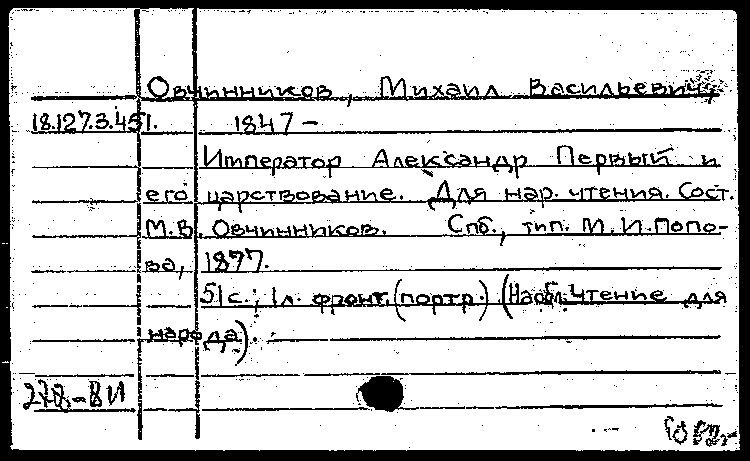 Овчинников, Михаил Васильевич,
18.127.3.451. 1847 –
Император Александр Первый и
его царствование. Для нар. чтения. Сост.
М.В. Овчинников. Спб., тип. М.И. Попо-
ва, 1877.
51 с.; 1 л. фронт. (портр.) (Чтение для
народа).